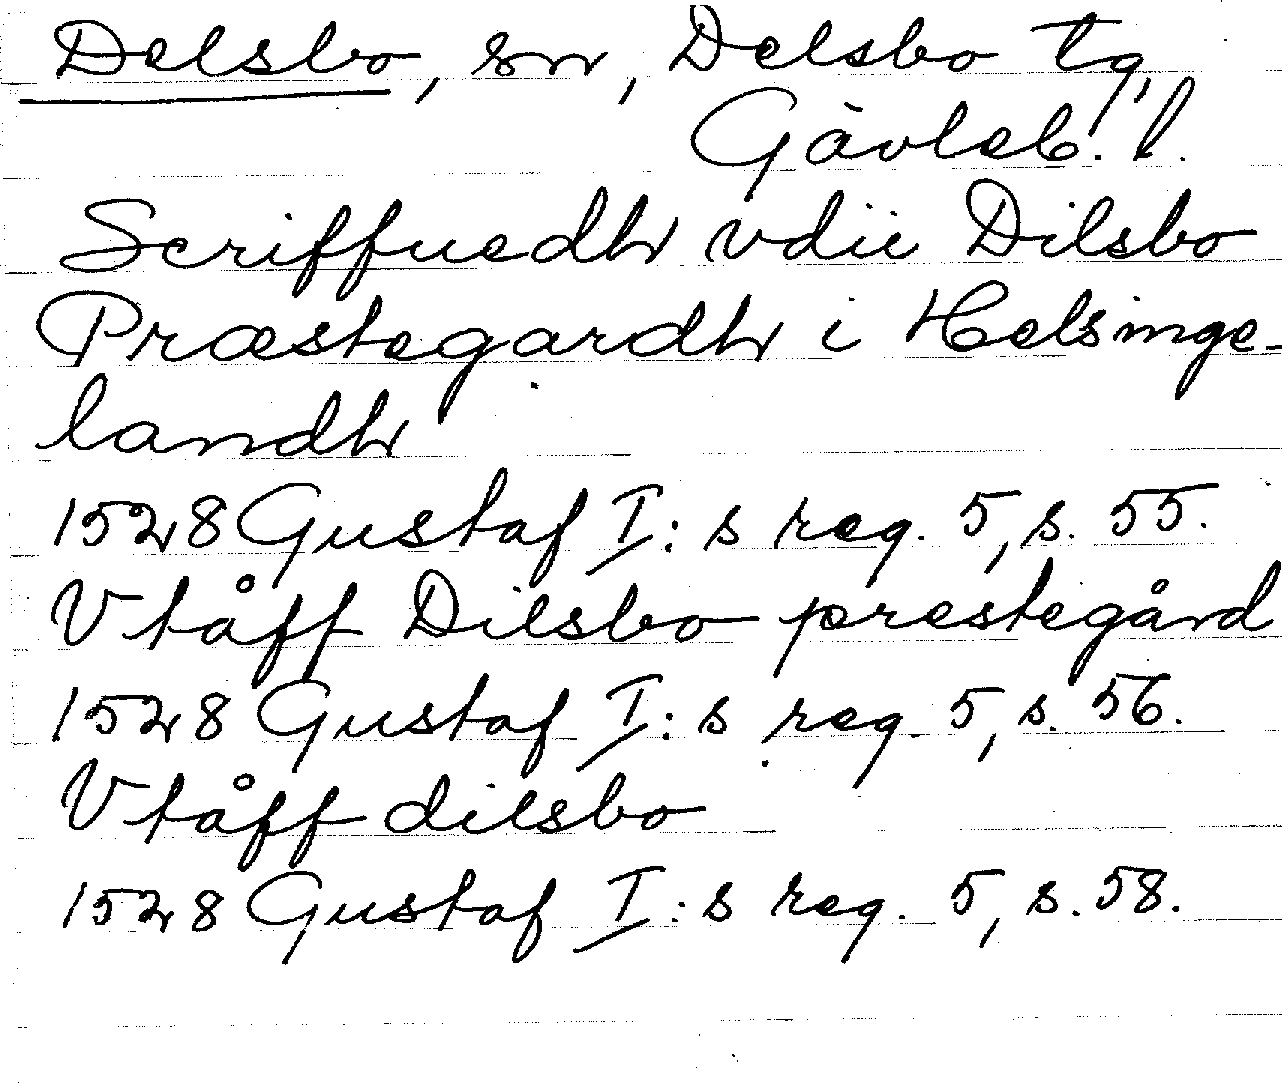 Delsbo, sn, Delsbo tg,
Gävleb. l.
Scriffuedh vdii Dilsbo
Præstegardh i Helsinge-
landh
1528 Gustaf I: s reg. 5, s. 55.
V tåff Dilsbo prestegård
1528 Gustaf I: s reg. 5, s. 56.
V tåff dilsbo
1528 Gustaf I: s reg. 5, s. 58.